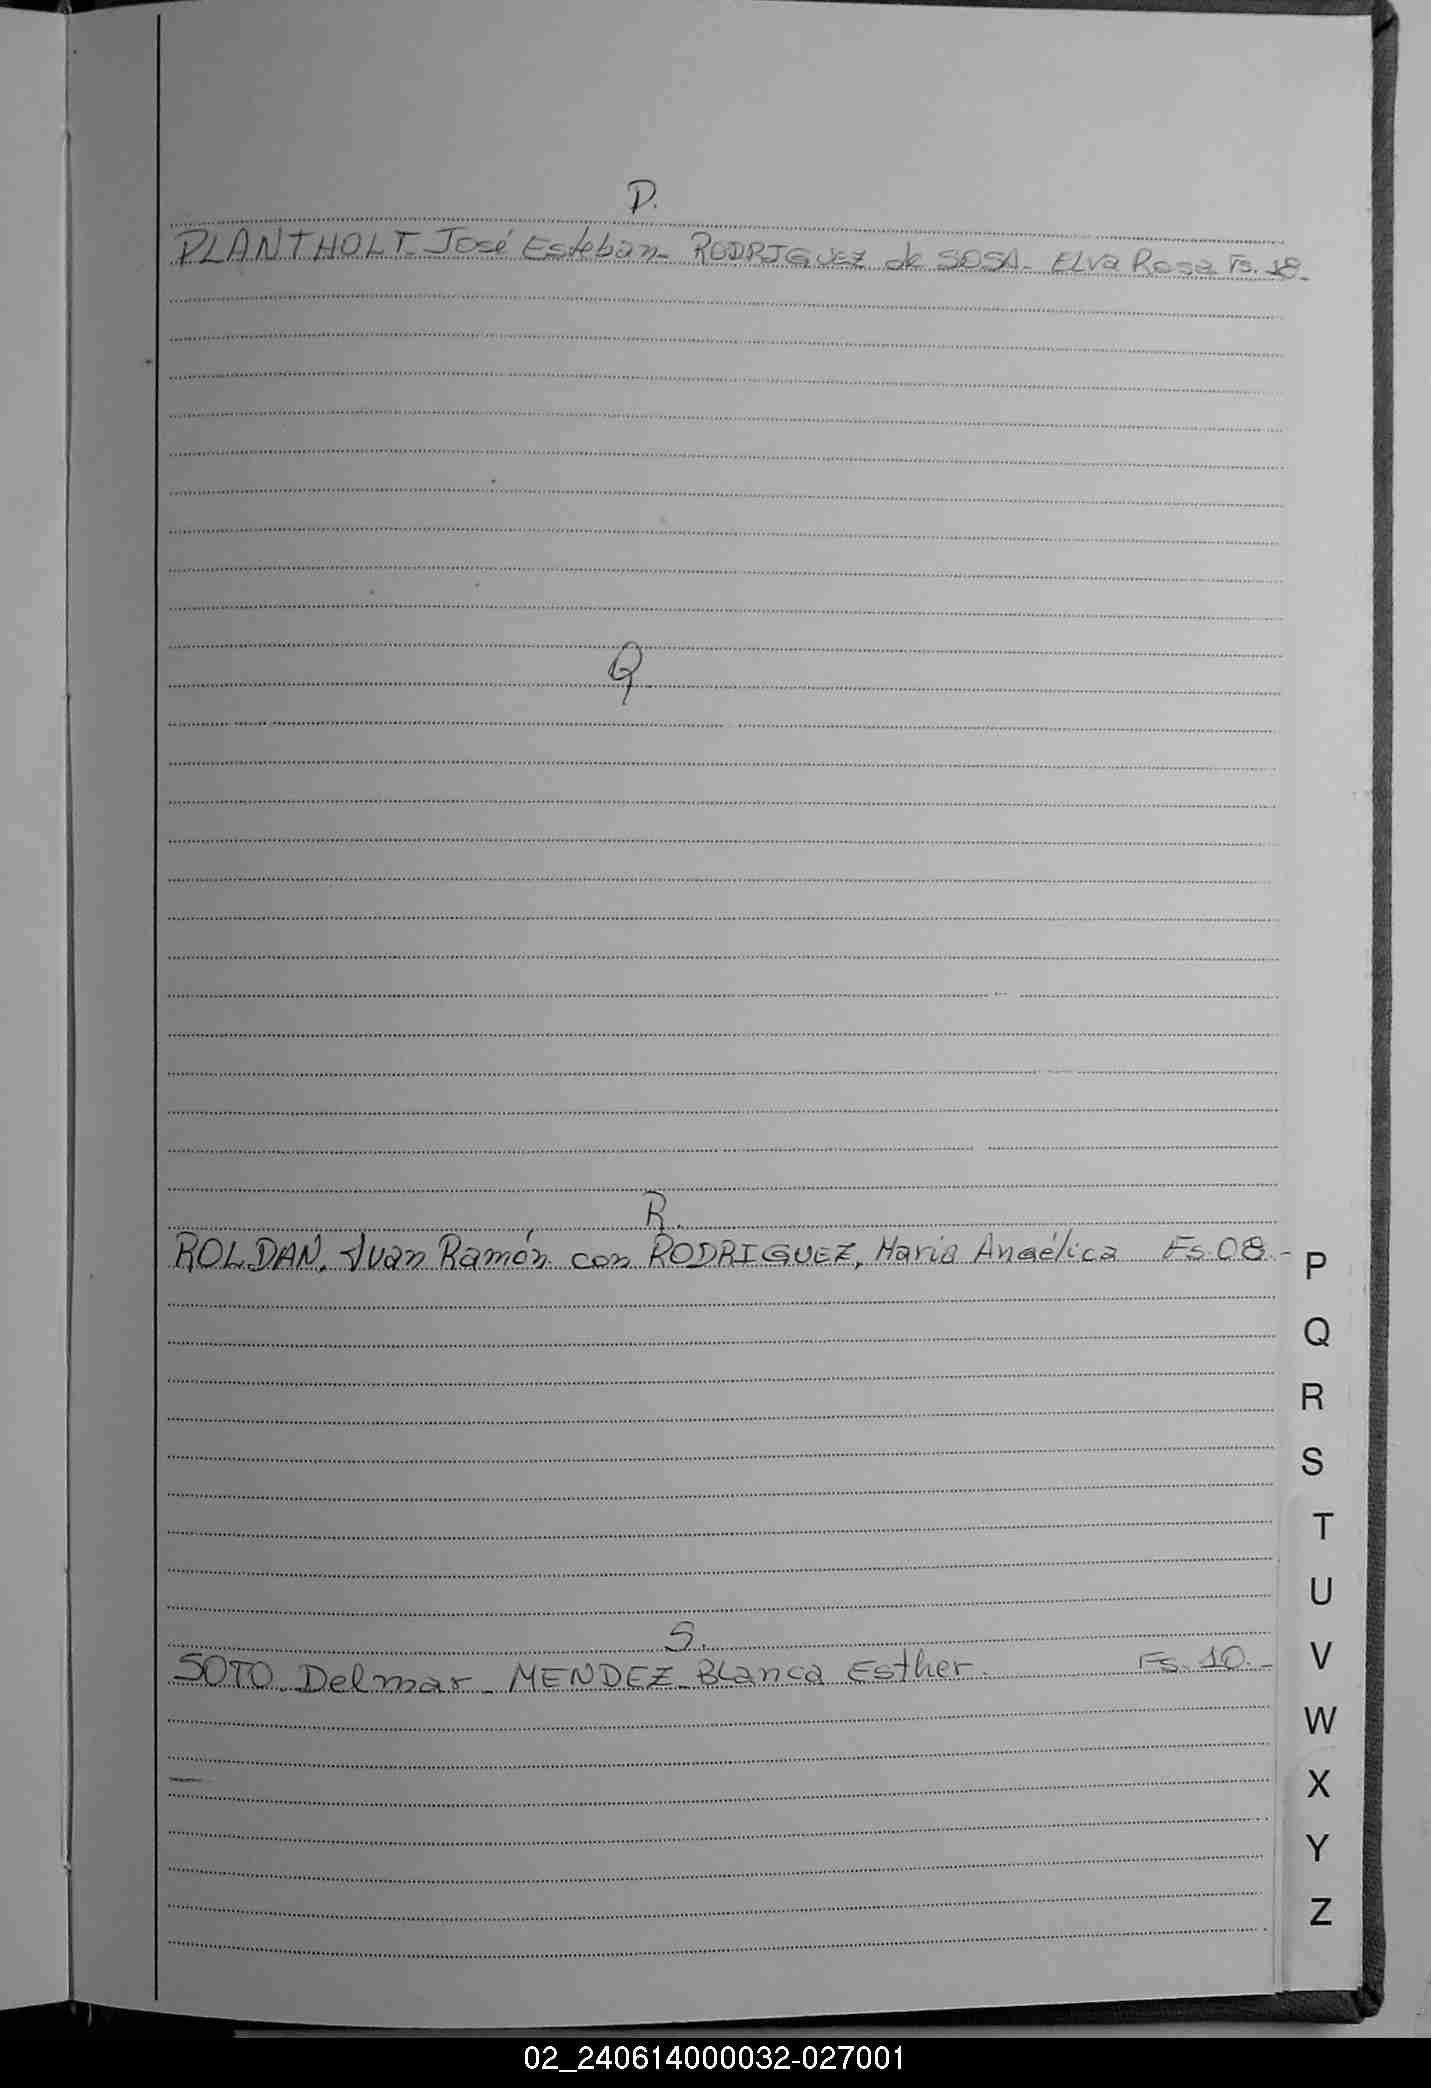 P.
PLANTHOLT. José Esteban - RODRIGUEZ de SOSA - ELva Rosa Fs. 18.-
Q
R.
ROLDAN, Juan Ramón con RODRIGUEZ, Maria Angélica Fs. 08.-
S.
SOTO. Delmar - MENDEZ - BLanca Esther. Fs. 10.-
P
Q
R
S
T
U
V
W
X
Y
Z
02_240614000032-027001